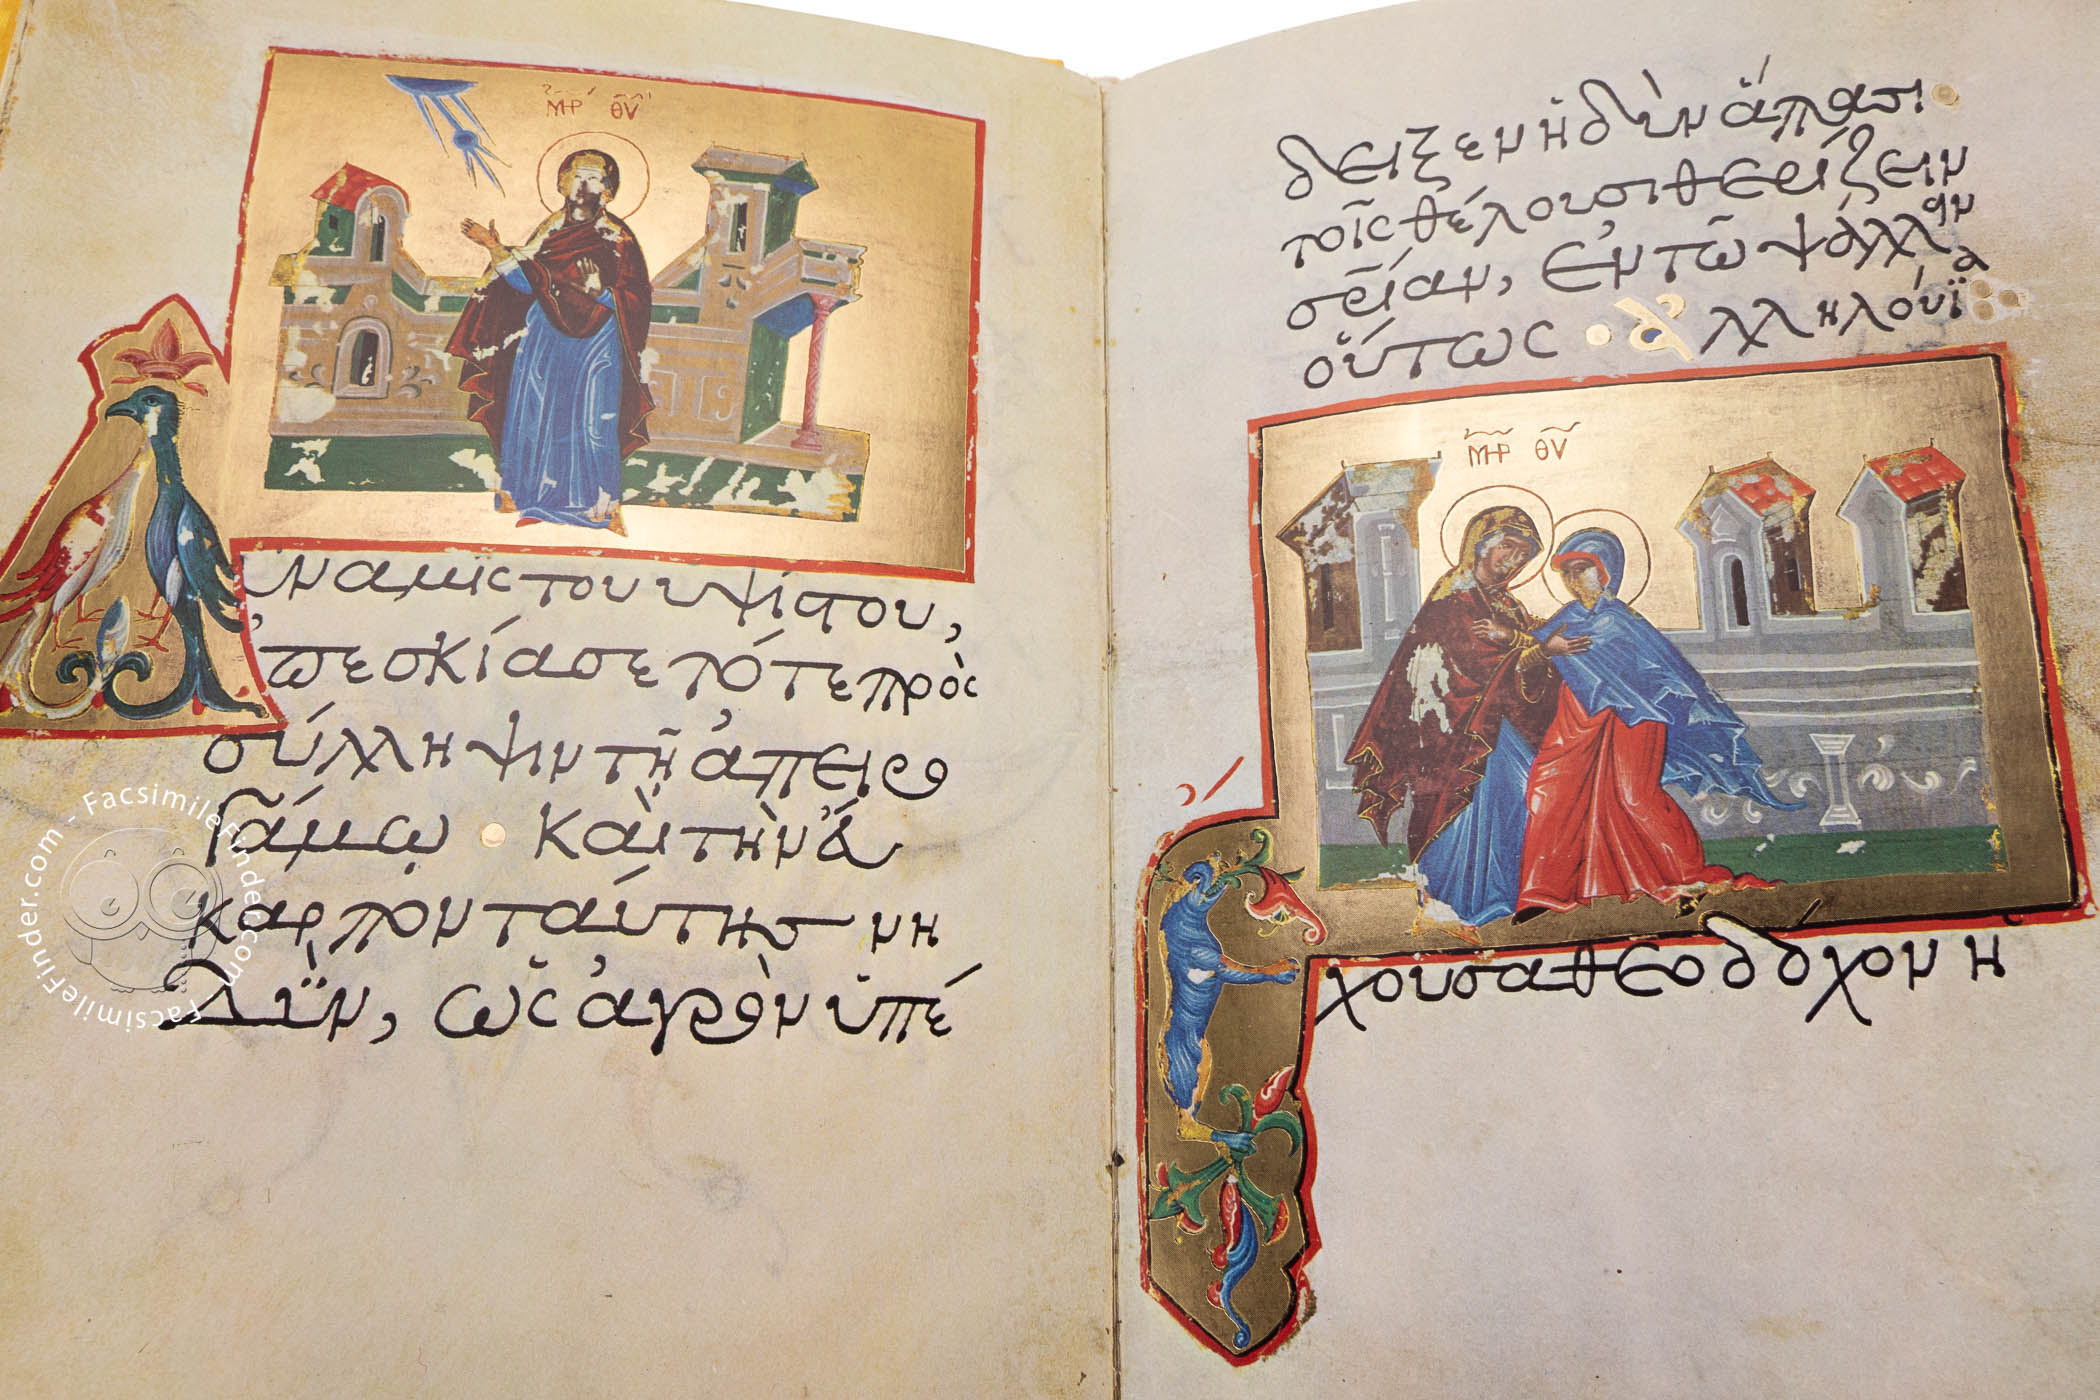 ΜΡ ΘΥ
Δύναμις του υψίστου,
ἐπεσκίασε τότε πρὸς
σύλληψιν τῇ ἀπειρο
γάμῳ · Καὶ τὴν εὔ
καρπον ταύτης νη
δϊν, ὡς ἀγρὸν ὑπέ
δειξεν ἡδὺν ἅπασι ·
τοῖς θέλουσι θερίζειν
σρίαν, ἐν τῶ ψάλλειν
οὕτως · ἀλληλούϊα
ΜΡ ΘΥ
Ἔχουσα θεοδόχον ἡ
FacsimileFinder.com - FacsimileFinder.com